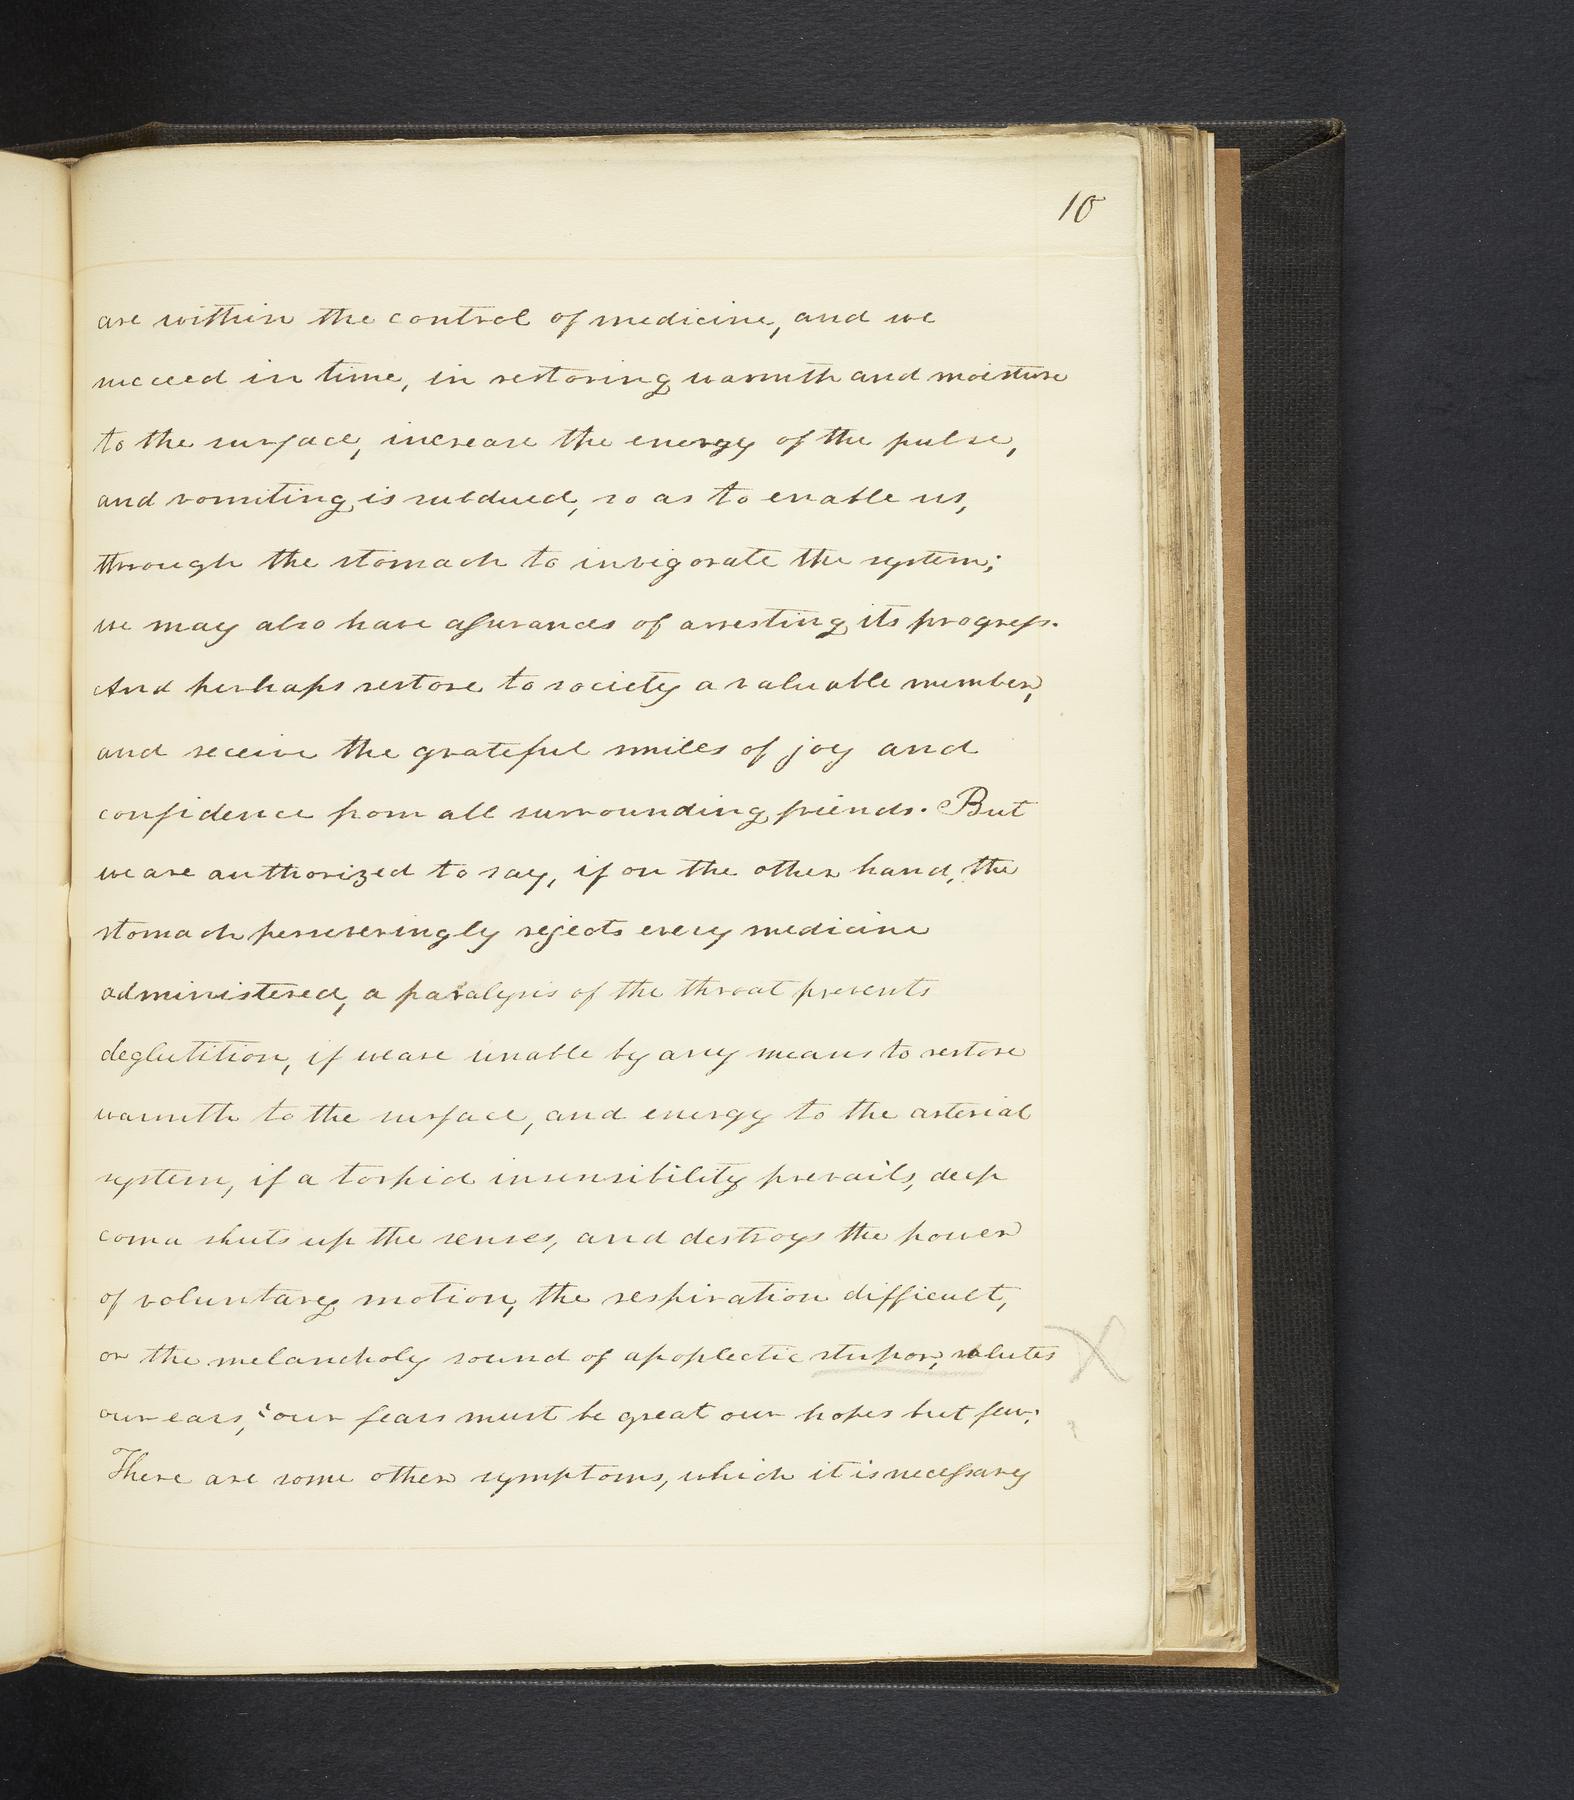 10
are within the control of medicine, and we
succeed in time, in restoring warmth and moisture
to the surface, increase the energy of the pulse,
and vomiting is subdued, so as to enable us,
through the stomach to invigorate the system;
we may also have assurances of arresting its progress.
And perhaps restore to society a valuable member,
and receive the grateful smiles of joy and
confidence from all surrounding friends. But
we are authorized to say, if on the other hand, the
stomach perseveringly rejects every medicine
administered, a paralysis of the throat prevents
deglutition, if we are unable by any means to restore
warmth to the surface, and energy to the arterial
system, if a torpid insensibility prevails, deep
coma shuts up the senses, and destroys the power
of voluntary motion, the respiration difficult,
or the melancholy sound of apoplectic stupor, salutes X
our ears, our fears must be great our hopes but few;
There are some other symptoms, which it is necessary